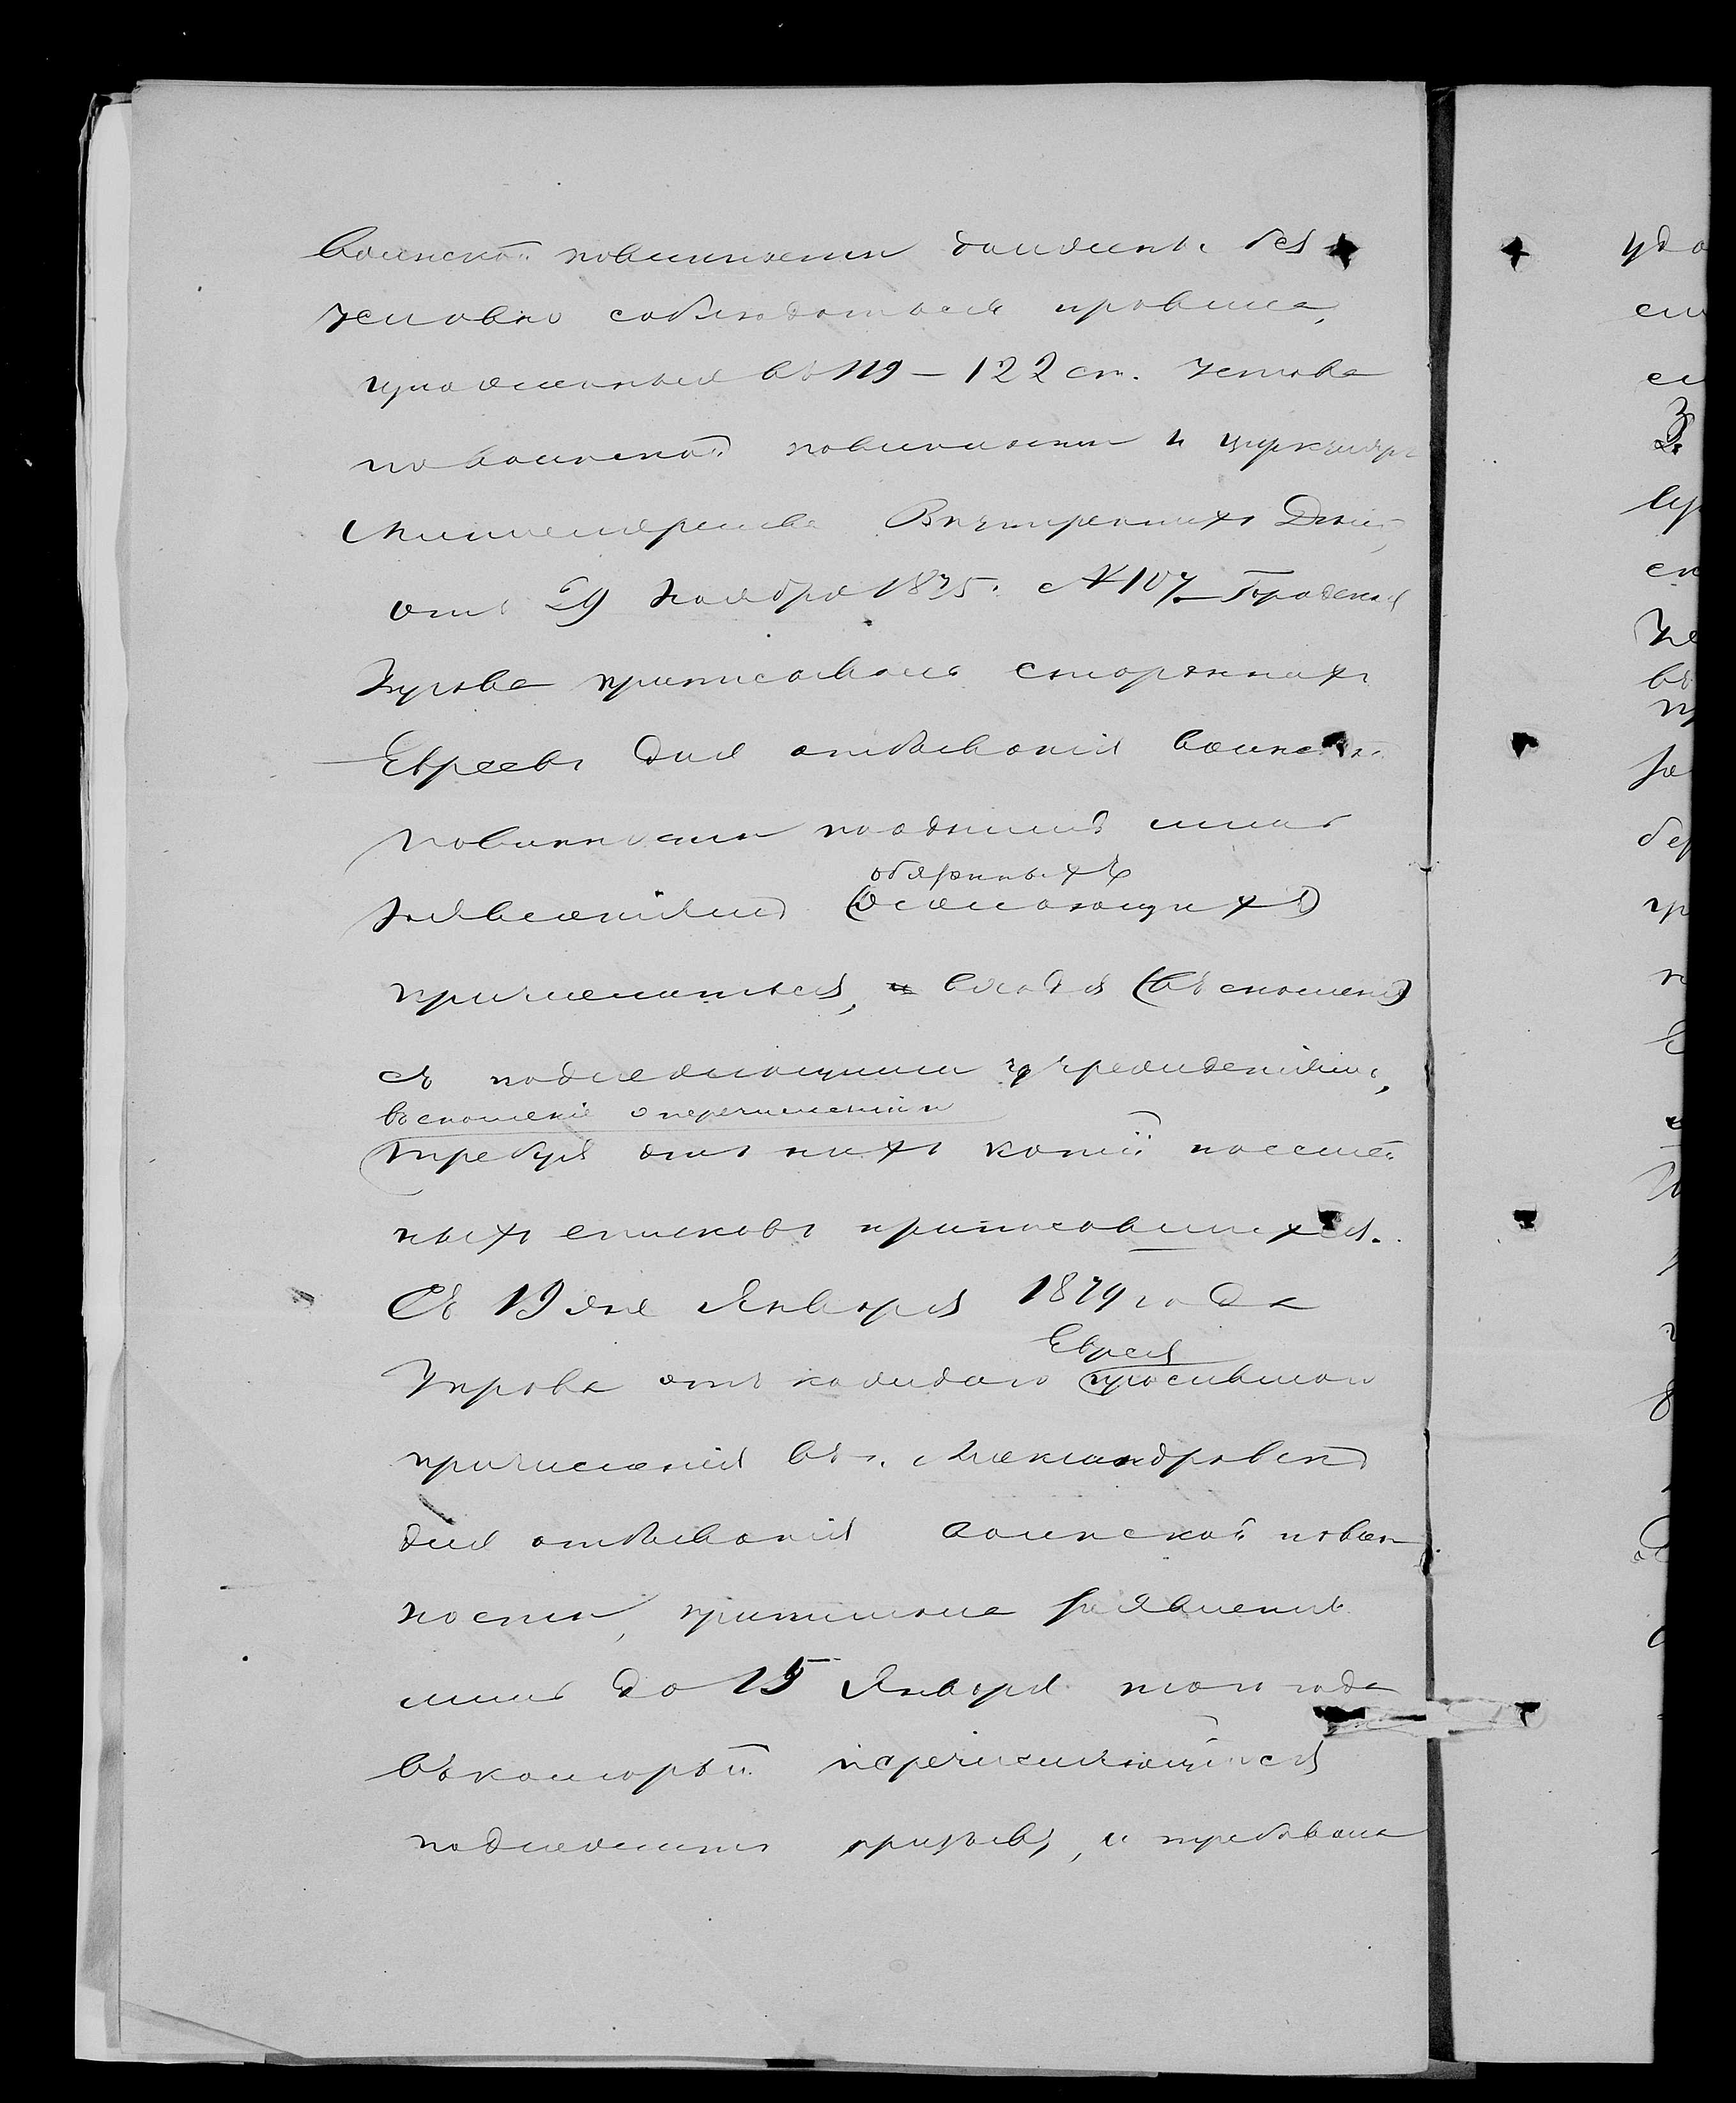 воинской повинности должны без
условно соблюдаться правила,
изложенныя въ 119 – 122 ст. Устава
по воинской повинности и циркуляръ
Министерства Внутреннихъ Дѣлъ,
отъ 29 Ноября 1875. № 107. – Городская
Управа приписывала стороннихъ
Евреевъ для отбыванія воинской
повинности по однимъ лишь
заявленіямъ (желающихъ)
обязанныхъ
причислиться, и входя (въ сношенія)
съ подлежащими учрежденіями,
въ сношеніе о перечисленіи и
требуя отъ нихъ копій посемей
ныхъ списковъ приписавшихся.
Съ 19 же Января 1879 года
Еврея
Управа отъ каждаго просившаго
причисленія въ г. Александровскъ
для отбыванія воинской повин
ности, принимала заявленія
лишь до 15 Января того года
въ который перечисляющійся
подлежитъ призыву, и требовала